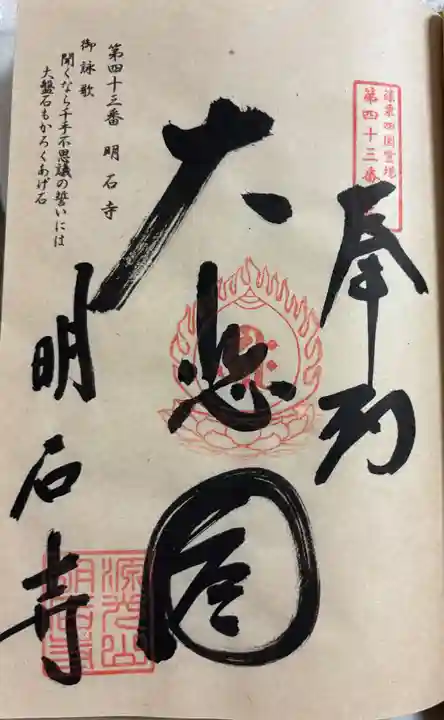 奉納
大悲閣
明石寺
第四十三番 明石寺
御詠歌
聞くなら千手不思議の誓いには
大盤石もかろくあげ石
四国霊場
第四十三番
源光山
明石寺